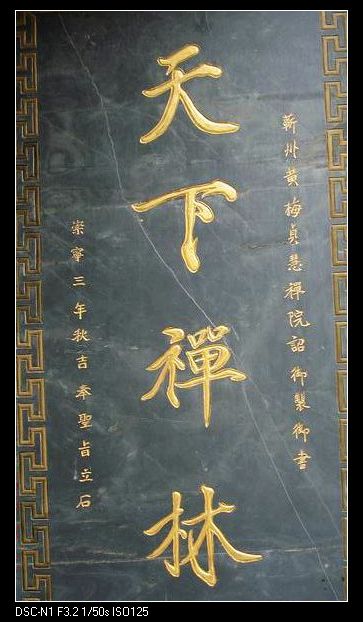 蘄州黄梅貞慧禪院詔御製御書
天下禪林
崇寧三年秋吉奉聖旨立石
DSC-N1 F3.2 1/50s ISO125